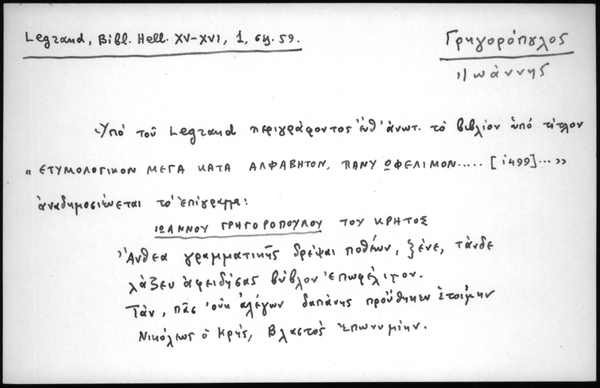 Legrand, Bibl. Hell. XV-XVI, 1, σχ. 59.
Γρηγορόπουλος
Ἰωάννης
Ὑπό τοῦ Legrand περιγράφοντος ἐνθ' ἀνωτ. τό βιβλίον ὑπό τίτλον
« ΕΤΥΜΟΛΟΓΙΚΟΝ ΜΕΓΑ ΚΑΤΑ ΑΛΦΑΒΗΤΟΝ, ΠΑΝΥ ΩΦΕΛΙΜΟΝ..... [1499]...»
ἀναδημοσιεύεται τό ἐπίγραμμα:
ΙΩΑΝΝΟΥ ΓΡΗΓΟΡΟΠΟΥΛΟΥ ΤΟΥ ΚΡΗΤΟΣ
Ἄνθεα γραμματικῆς δρέψαι ποθέων, ξένε, τάνδε
λάζευ ἀφειδήσας βύβλον ἐπωφέλιμον.
Τάν, πᾶς οὐκ ἀλέγων δαπάνης προὔθηκεν ἑτοίμην
Νικόλεως ὁ Κρής, Βλαστός ἐπωνυμίην.